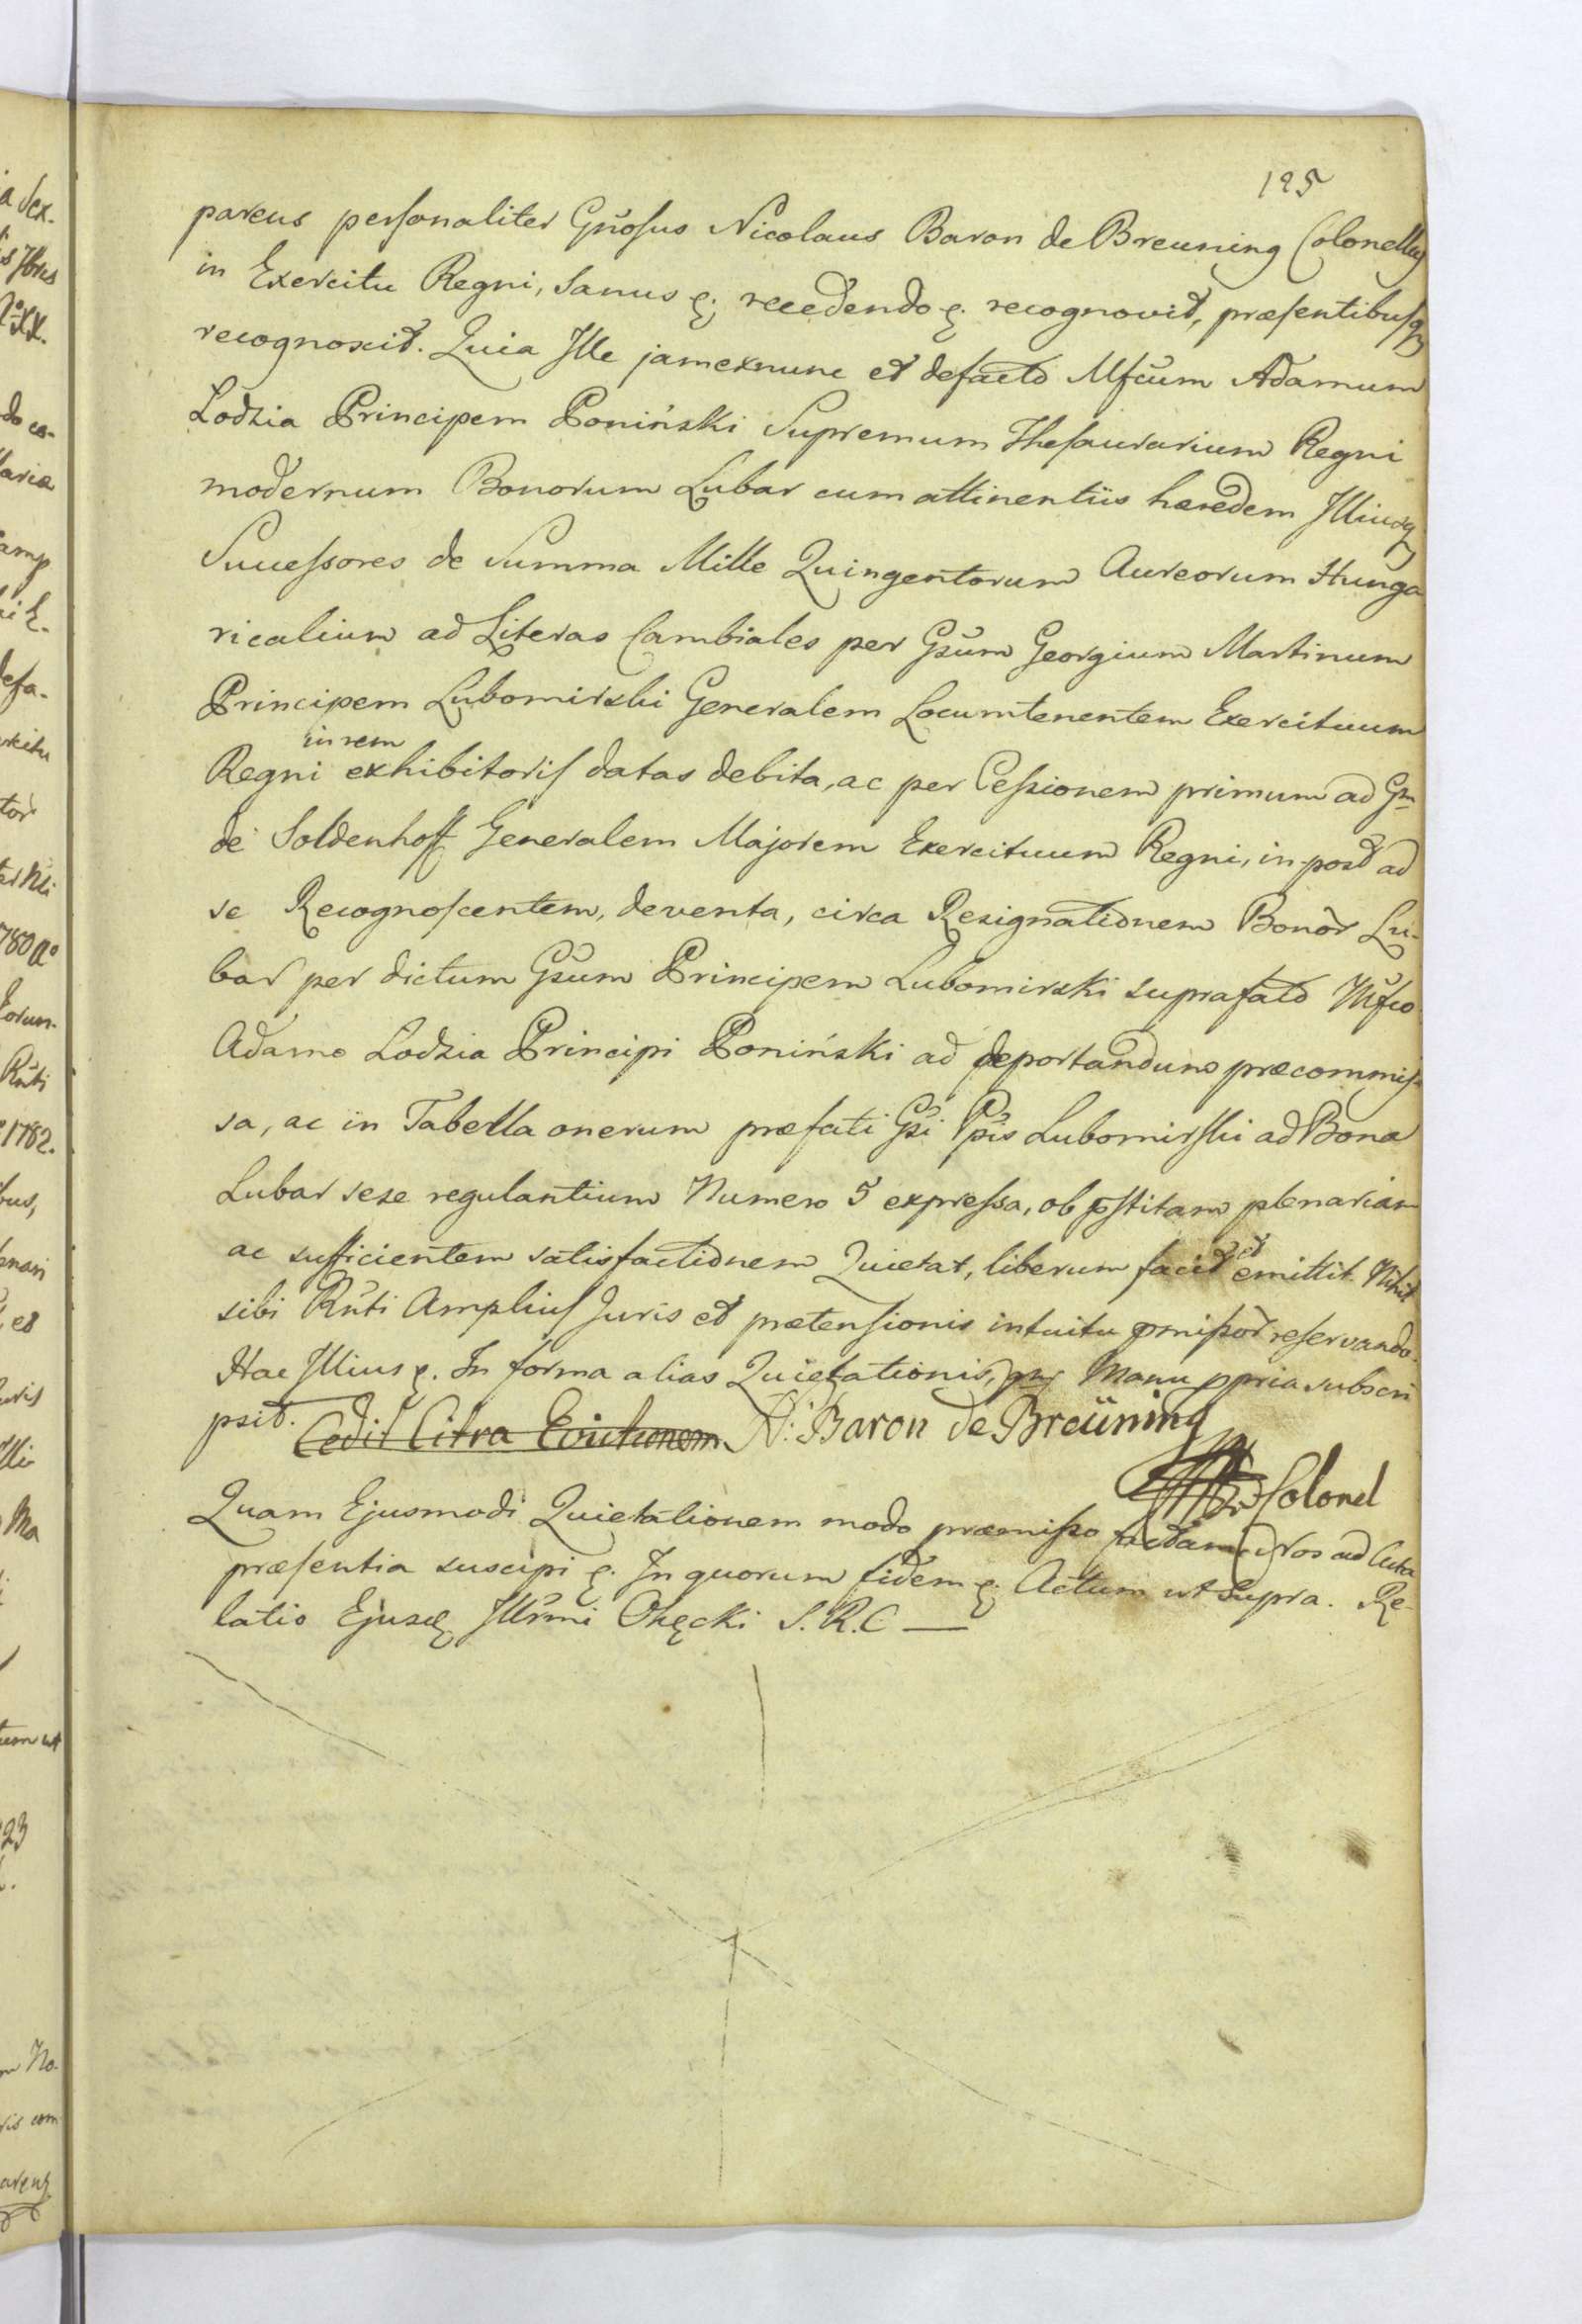 195
pareus personaliter Gnosus Nicolaus Baron de Breuning Colonellus
in Exercitu Regni, Sanus &. recedendo &. recognovit, præsentibusq
recognoscit. Quia Ille jamexnunc et defacto Mfcum Adamum
Lodzia Principem Poniński Supremum Thesaurarium Regni
modernum Bonorum Lubar cum attinentiis hæredem Illiusq
Successores de Summa Mille Quingentorum Aureorum Hunga
ricalium ad Literas Cambiales per Gsum Georgium Martinum
Principem Lubomirski Generalem Locumtenentem Exercituum
in rem
Regni exhibitoris datas debita, ac per Cessionem primum ad Gm
de Soldenhoff Generalem Majorem Exercituum Regni, in post ad
se Recognoscentem, deventa, circa Resignationem Bonor Lu-
bar per dictum Gsum Principem Lubomirski suprafato Mfco
Adamo Lodzia Principi Poniński ad deportandum præcommis-
sa, ac in Tabella onerum præfati Gsi Ppis Lubomirski ad Bona
Lubar sese regulantium Numero 5 expressa, ob pstitam plenariam
ac sufficientem satisfactionem Quietat, liberum facit et emittit. Nihil
sibi Rnti Amplius Juris et prætensionis intuitu pmissor reservando.
Hac Illius &. In forma alias Quietationis, Manu ppria subscri
psit. Cedit Citra Evictionem N: Baron de Breüning
Colonel
Quam Ejusmodi Quietationem modo præmisso factam Nos ad Acta
præsentia suscipi &. In quorum fidem &. Actum ut Supra. Re-
latio Ejusd Illrmi Okęcki S. R. C —